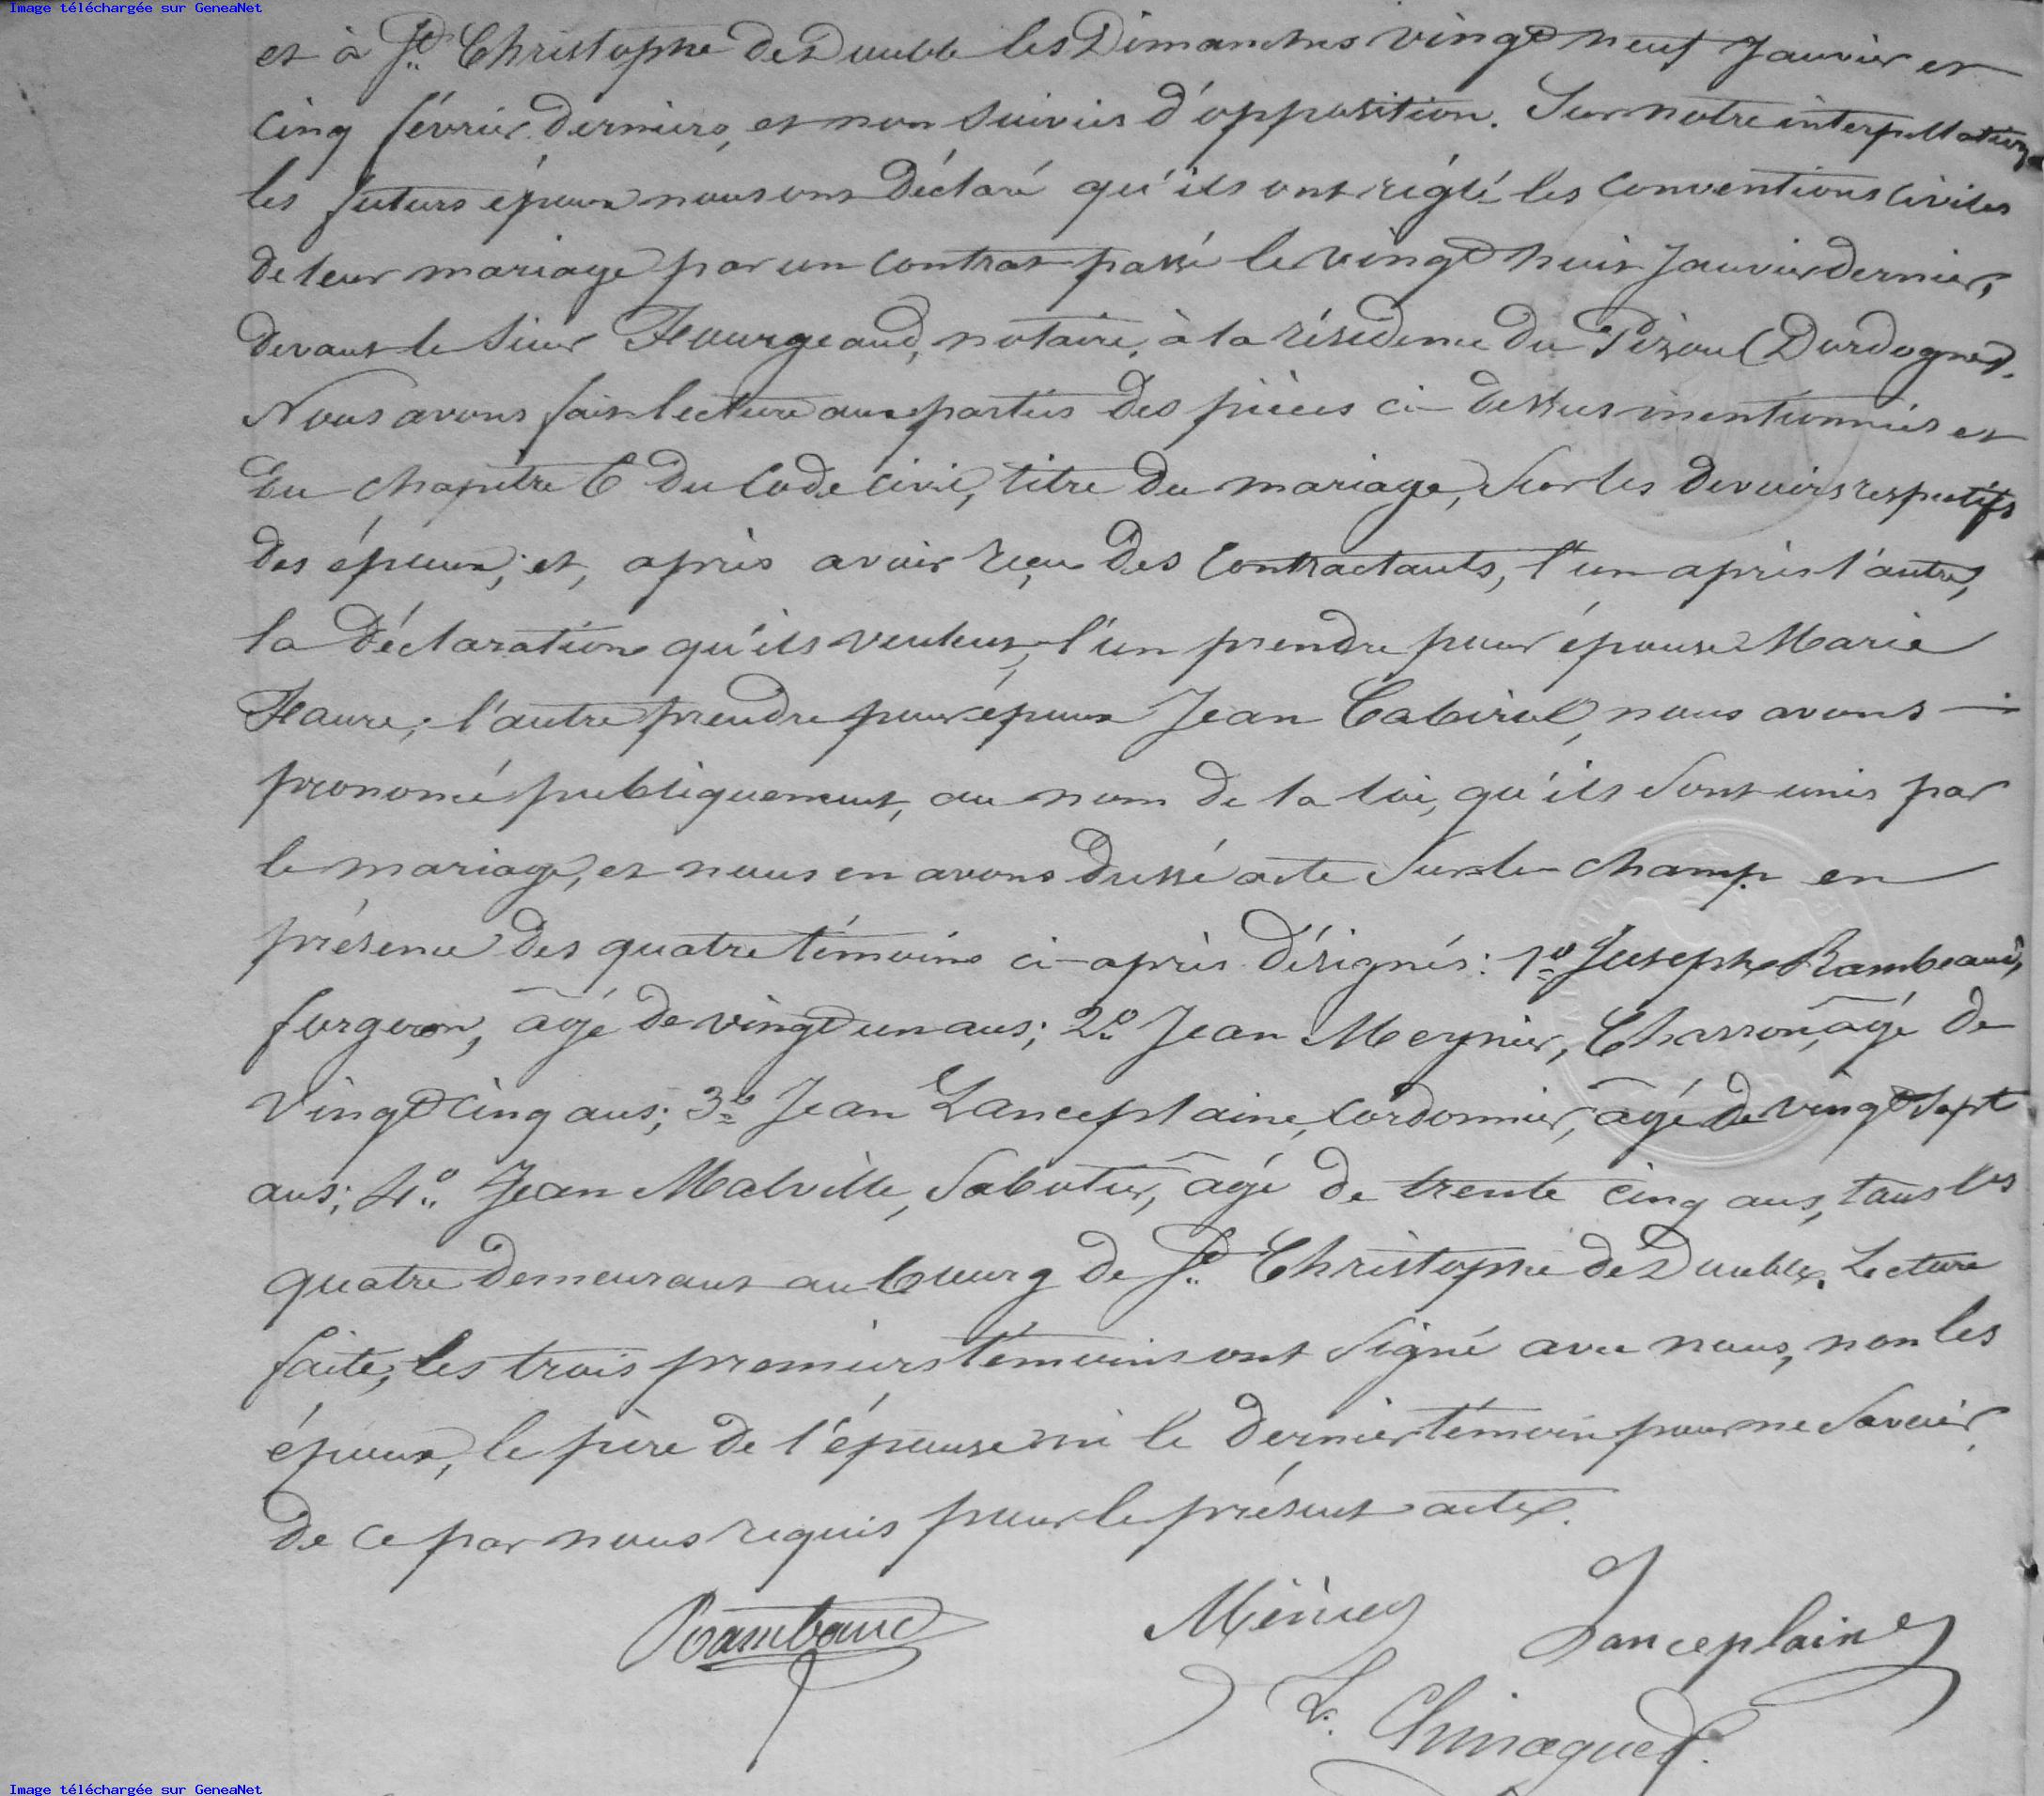 Image téléchargée sur GeneaNet
et à St. Christophe de Double les Dimanches vingt neuf Janvier et
cinq février derniers, et non suivies d'opposition. Sur notre interpellation
les futurs époux nous ont déclaré qu'ils ont réglé les conventions civiles
de leur mariage par un contrat passé le vingt huit Janvier dernier,
devant le Sieur Fourgeaud, notaire, à la résidence du Pizou (Dordogne).
Nous avons fait lecture aux parties des pièces ci-dessus mentionnées et
du chapitre 6 du Code civil, titre du mariage, sur les devoirs respectifs
des époux; et, après avoir reçu des Contractants, l'un après l'autre,
la déclaration qu'ils veulent, l'un prendre pour épouse Marie
Faure; l'autre prendre pour époux Jean Cabirol, nous avons —
prononcé publiquement, au nom de la loi, qu'ils sont unis par
le mariage, et nous en avons dressé acte sur-le-champ en
présence des quatre témoins ci-après désignés: 1o Joseph Rambeaud,
forgeron, âgé de vingt un ans; 2o Jean Meynier, Charron, âgé de
vingt cinq ans; 3o Jean Lanceplaine, Cordonnier, âgé de vingt sept
ans; 4o Jean Malville, Sabotier, âgé de trente cinq ans, tous les
quatre demeurant au bourg de St. Christophe de Double. Lecture
faite, les trois premiers témoins ont signé avec nous, non les
époux, le père de l'épouse ni le dernier témoin pour ne savoir,
de ce par nous requis pour le présent acte.
Rambaud Lanceplaine
L.
Image téléchargée sur GeneaNet